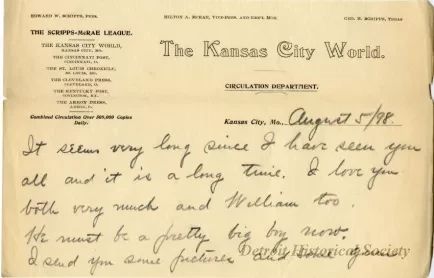 EDWARD W. SCRIPPS, PRES.
MILTON A. McRAE, VICE-PRES. AND GEN'L MGR.
GEO. H. SCRIPPS, TREAS
THE SCRIPPS-McRAE LEAGUE.
THE KANSAS CITY WORLD,
KANSAS CITY, MO.
THE CINCINNATI POST,
CINCINNATI, O.
THE ST. LOUIS CHRONICLE,
ST. LOUIS, MO.
THE CLEVELAND PRESS,
CLEVELAND, O.
THE KENTUCKY POST,
COVINGTON, KY.
THE AKRON PRESS,
AKRON, O.
Combined Circulation Over 300,000 Copies
Daily.
The Kansas City World.
CIRCULATION DEPARTMENT.
Kansas City, Mo., August 5/98.
It seems very long since I have seen you
all and it is a long time. I love you
both very much and William too.
He must be a pretty big boy now.
I send you some pictures and some
Detroit Historical Society